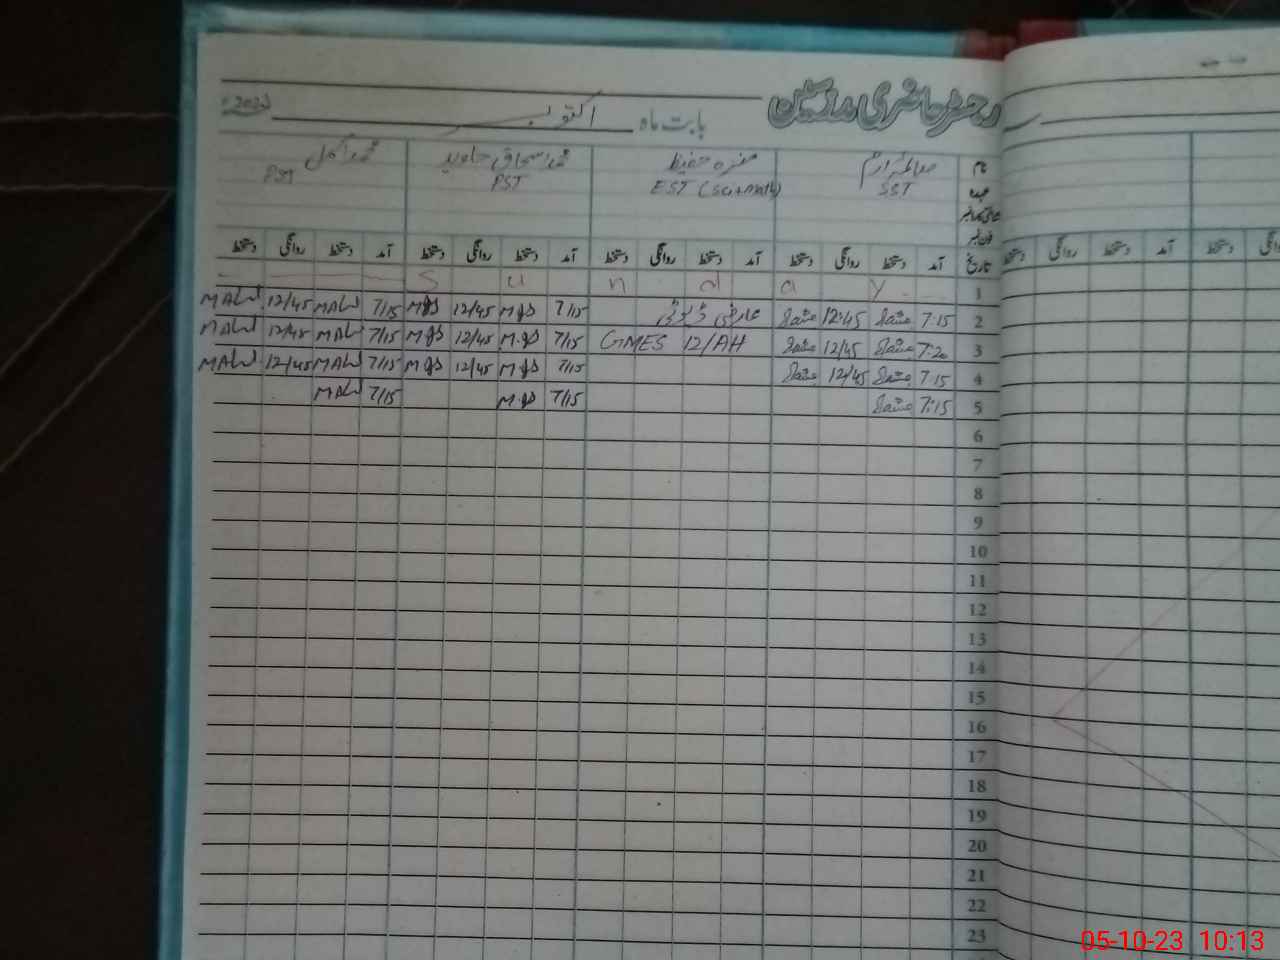 رجسٹر حاضری مدرسین
بابت ماہ اکتوبر 2023ء
نام صائمہ ارم منزہ حفیظ محمد اسحاق جاوید محمد اکمل
عہدہ SST EST (Sci+math) PST PST
فون نمبر
تاریخ آمد دستخط روانگی دستخط آمد دستخط روانگی دستخط آمد دستخط روانگی دستخط آمد دستخط روانگی دستخط
1 S u n d a y
2 7:15 12:45 عارضی ڈیوٹی 7/15 12/45 7/15 12/45
3 7:20 12/45 GMES 12/AH 7/15 12/45 7/15 12/45
4 7:15 12/45 7/15 12/45 7/15 12/45
5 7:15 7/15 7/15
6
7
8
9
10
11
12
13
14
15
16
17
18
19
20
21
22
23
آمد دستخط روانگی دستخط
05-10-23 10:13